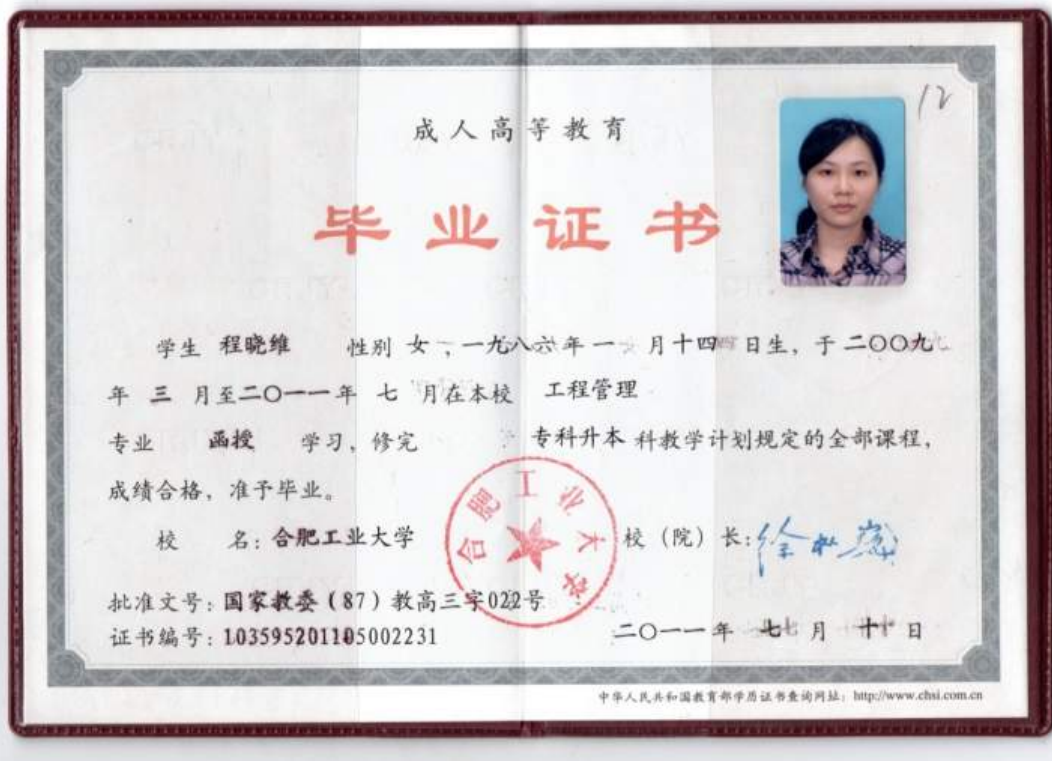 12
成人高等教育
毕业证书
学生 程晓维 性别 女，一九八六年一 月十四日生，于二〇〇九
年 三 月至二〇一一年 七 月在本校 工程管理
专业 函授 学习，修完 专科升本 科教学计划规定的全部课程，
成绩合格，准予毕业。
校 名：合肥工业大学
合肥工业大学
校（院）长：
批准文号：国家教委（87）教高三字022号
证书编号：103595201105002231
二〇一一年 七 月 十 日
中华人民共和国教育部学历证书查询网址：http://www.chsi.com.cn